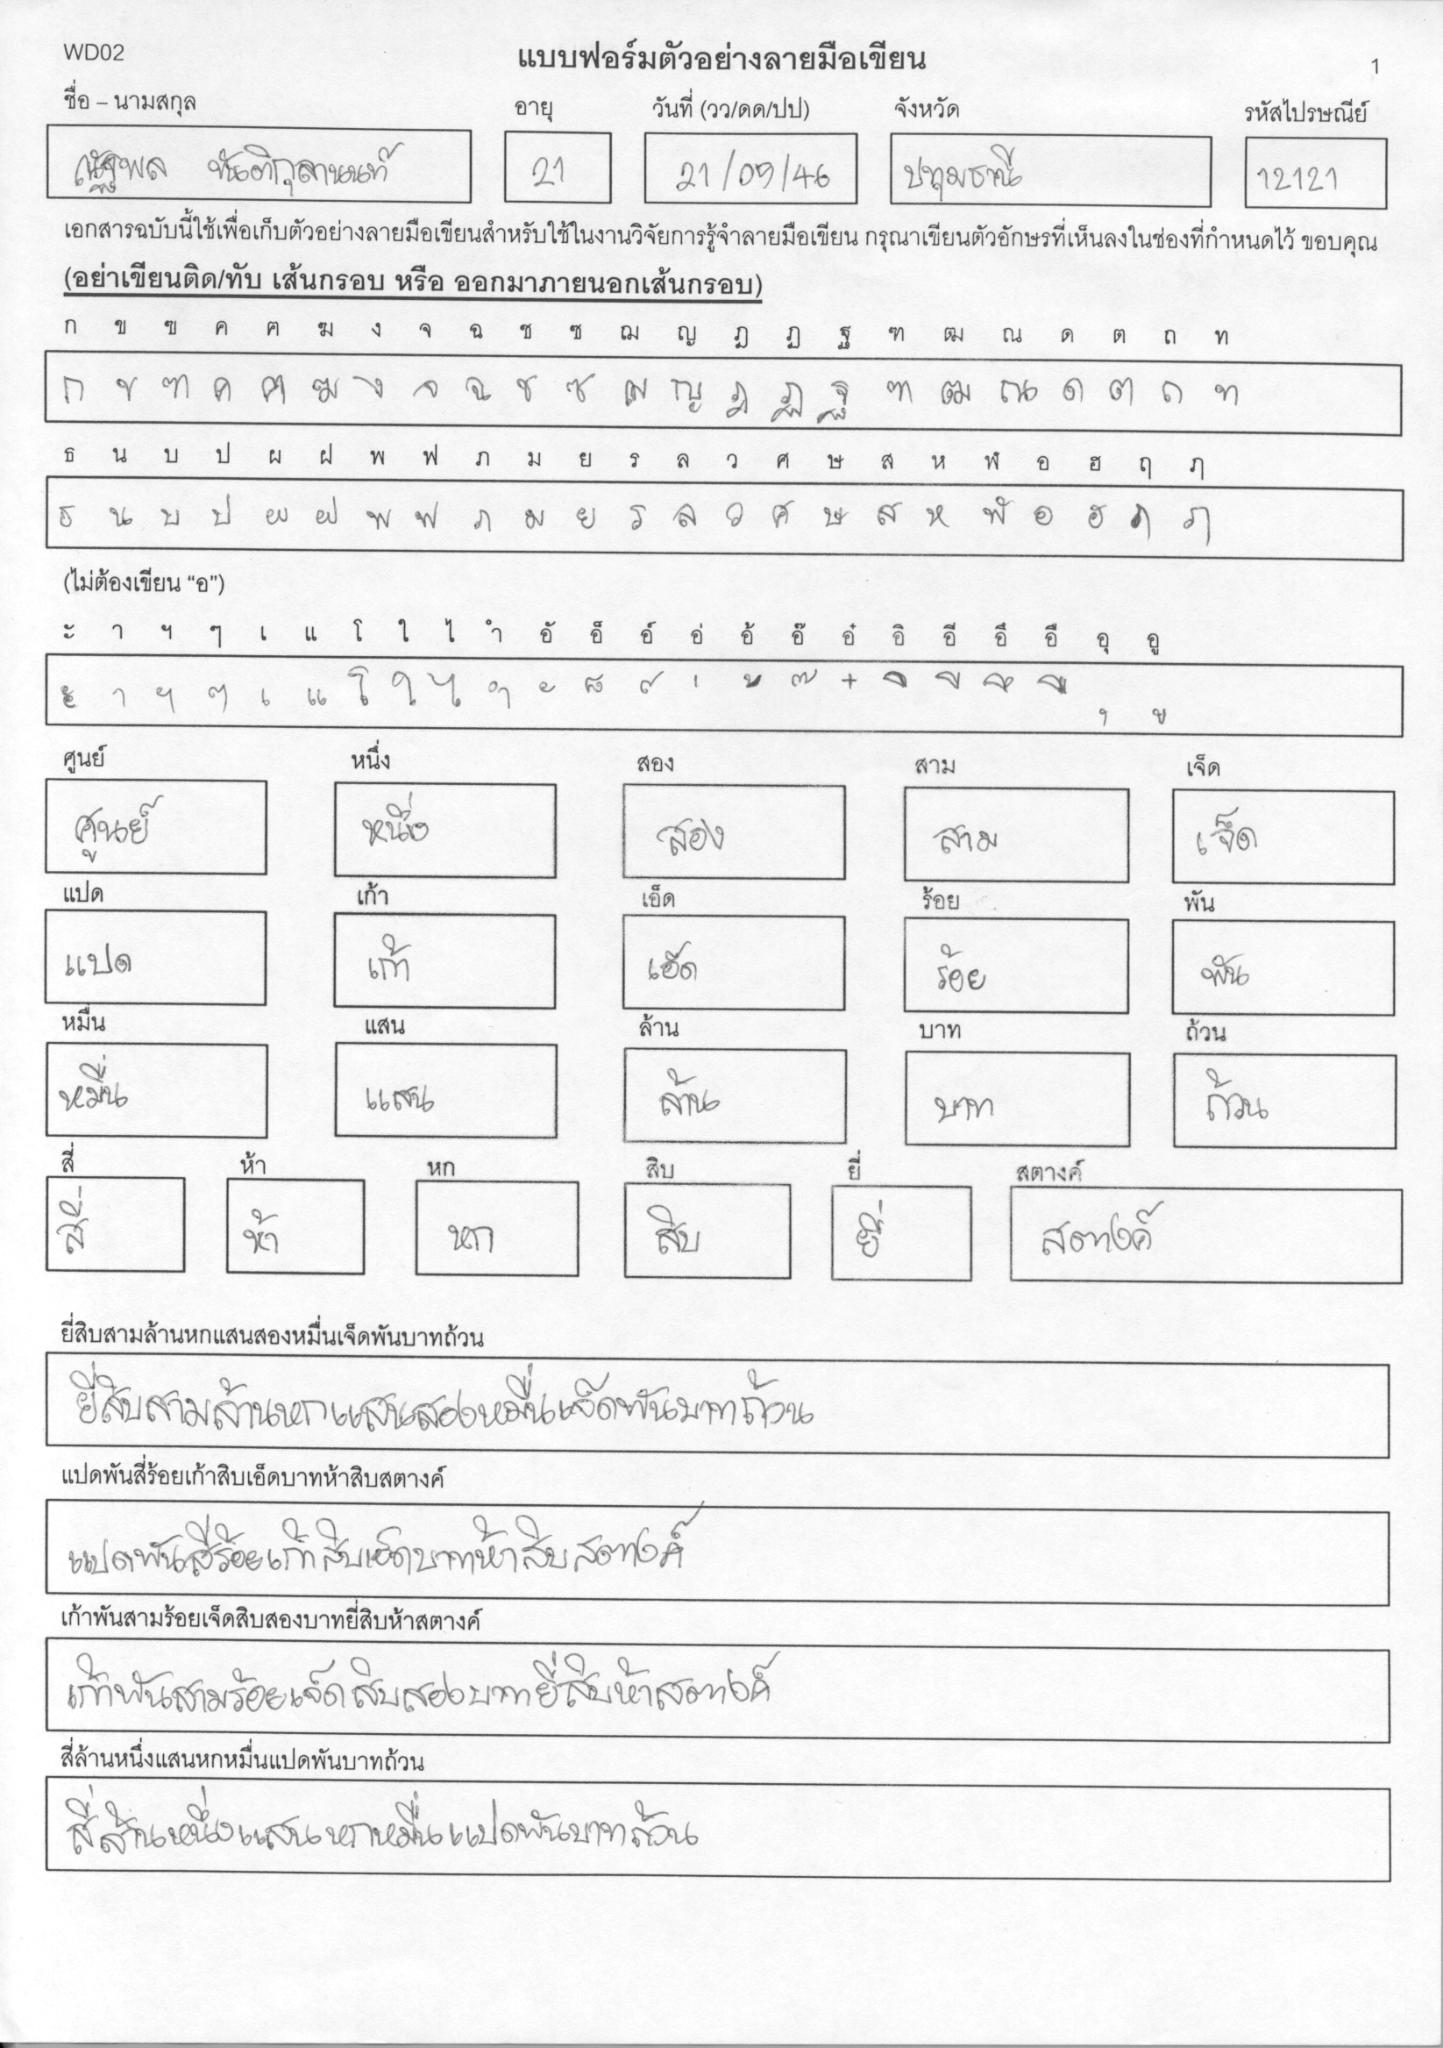 WD02 แบบฟอร์มตัวอย่างลายมือเขียน 1
ชื่อ – นามสกุล อายุ วันที่ (วว/ดด/ปป) จังหวัด รหัสไปรษณีย์
ณัฐพล 21 21/09/46 ปทุมธานี 12121
เอกสารฉบับนี้ใช้เพื่อเก็บตัวอย่างลายมือเขียนสำหรับใช้ในงานวิจัยการรู้จำลายมือเขียน กรุณาเขียนตัวอักษรที่เห็นลงในช่องที่กำหนดไว้ ขอบคุณ
(อย่าเขียนติด/ทับ เส้นกรอบ หรือ ออกมาภายนอกเส้นกรอบ)
ก ข ฃ ค ฅ ฆ ง จ ฉ ช ซ ฌ ญ ฎ ฏ ฐ ฑ ฒ ณ ด ต ถ ท
ก ข ฃ ค ฅ ฆ ง จ ฉ ช ซ ฌ ญ ฎ ฏ ฐ ฑ ฒ ณ ด ต ถ ท
ธ น บ ป ผ ฝ พ ฟ ภ ม ย ร ล ว ศ ษ ส ห ฬ อ ฮ ฤ ฦ
ธ น บ ป ผ ฝ พ ฟ ภ ม ย ร ล ว ศ ษ ส ห ฬ อ ฮ ฤ ฦ
(ไม่ต้องเขียน “อ”)
ะ า ฯ ๆ เ แ โ ใ ไ ำ อั อ็ อ์ อ่ อ้ อ๊ อ๋ อิ อี อึ อื อุ อู
ะ า ฯ ๆ เ แ โ ใ ไ ำ ั ็ ์ ่ ้ ๊ ๋ ิ ี ึ ื ุ ู
ศูนย์ หนึ่ง สอง สาม เจ็ด
ศูนย์ หนึ่ง สอง สาม เจ็ด
แปด เก้า เอ็ด ร้อย พัน
แปด เก้า เอ็ด ร้อย พัน
หมื่น แสน ล้าน บาท ถ้วน
หมื่น แสน ล้าน บาท ถ้วน
สี่ ห้า หก สิบ ยี่ สตางค์
สี่ ห้า หก สิบ ยี่ สตางค์
ยี่สิบสามล้านหกแสนสองหมื่นเจ็ดพันบาทถ้วน
ยี่สิบสามล้านหกแสนสองหมื่นเจ็ดพันบาทถ้วน
แปดพันสี่ร้อยเก้าสิบเอ็ดบาทห้าสิบสตางค์
แปดพันสี่ร้อยเก้าสิบเอ็ดบาทห้าสิบสตางค์
เก้าพันสามร้อยเจ็ดสิบสองบาทยี่สิบห้าสตางค์
เก้าพันสามร้อยเจ็ดสิบสองบาทยี่สิบห้าสตางค์
สี่ล้านหนึ่งแสนหกหมื่นแปดพันบาทถ้วน
สี่ล้านหนึ่งแสนหกหมื่นแปดพันบาทถ้วน